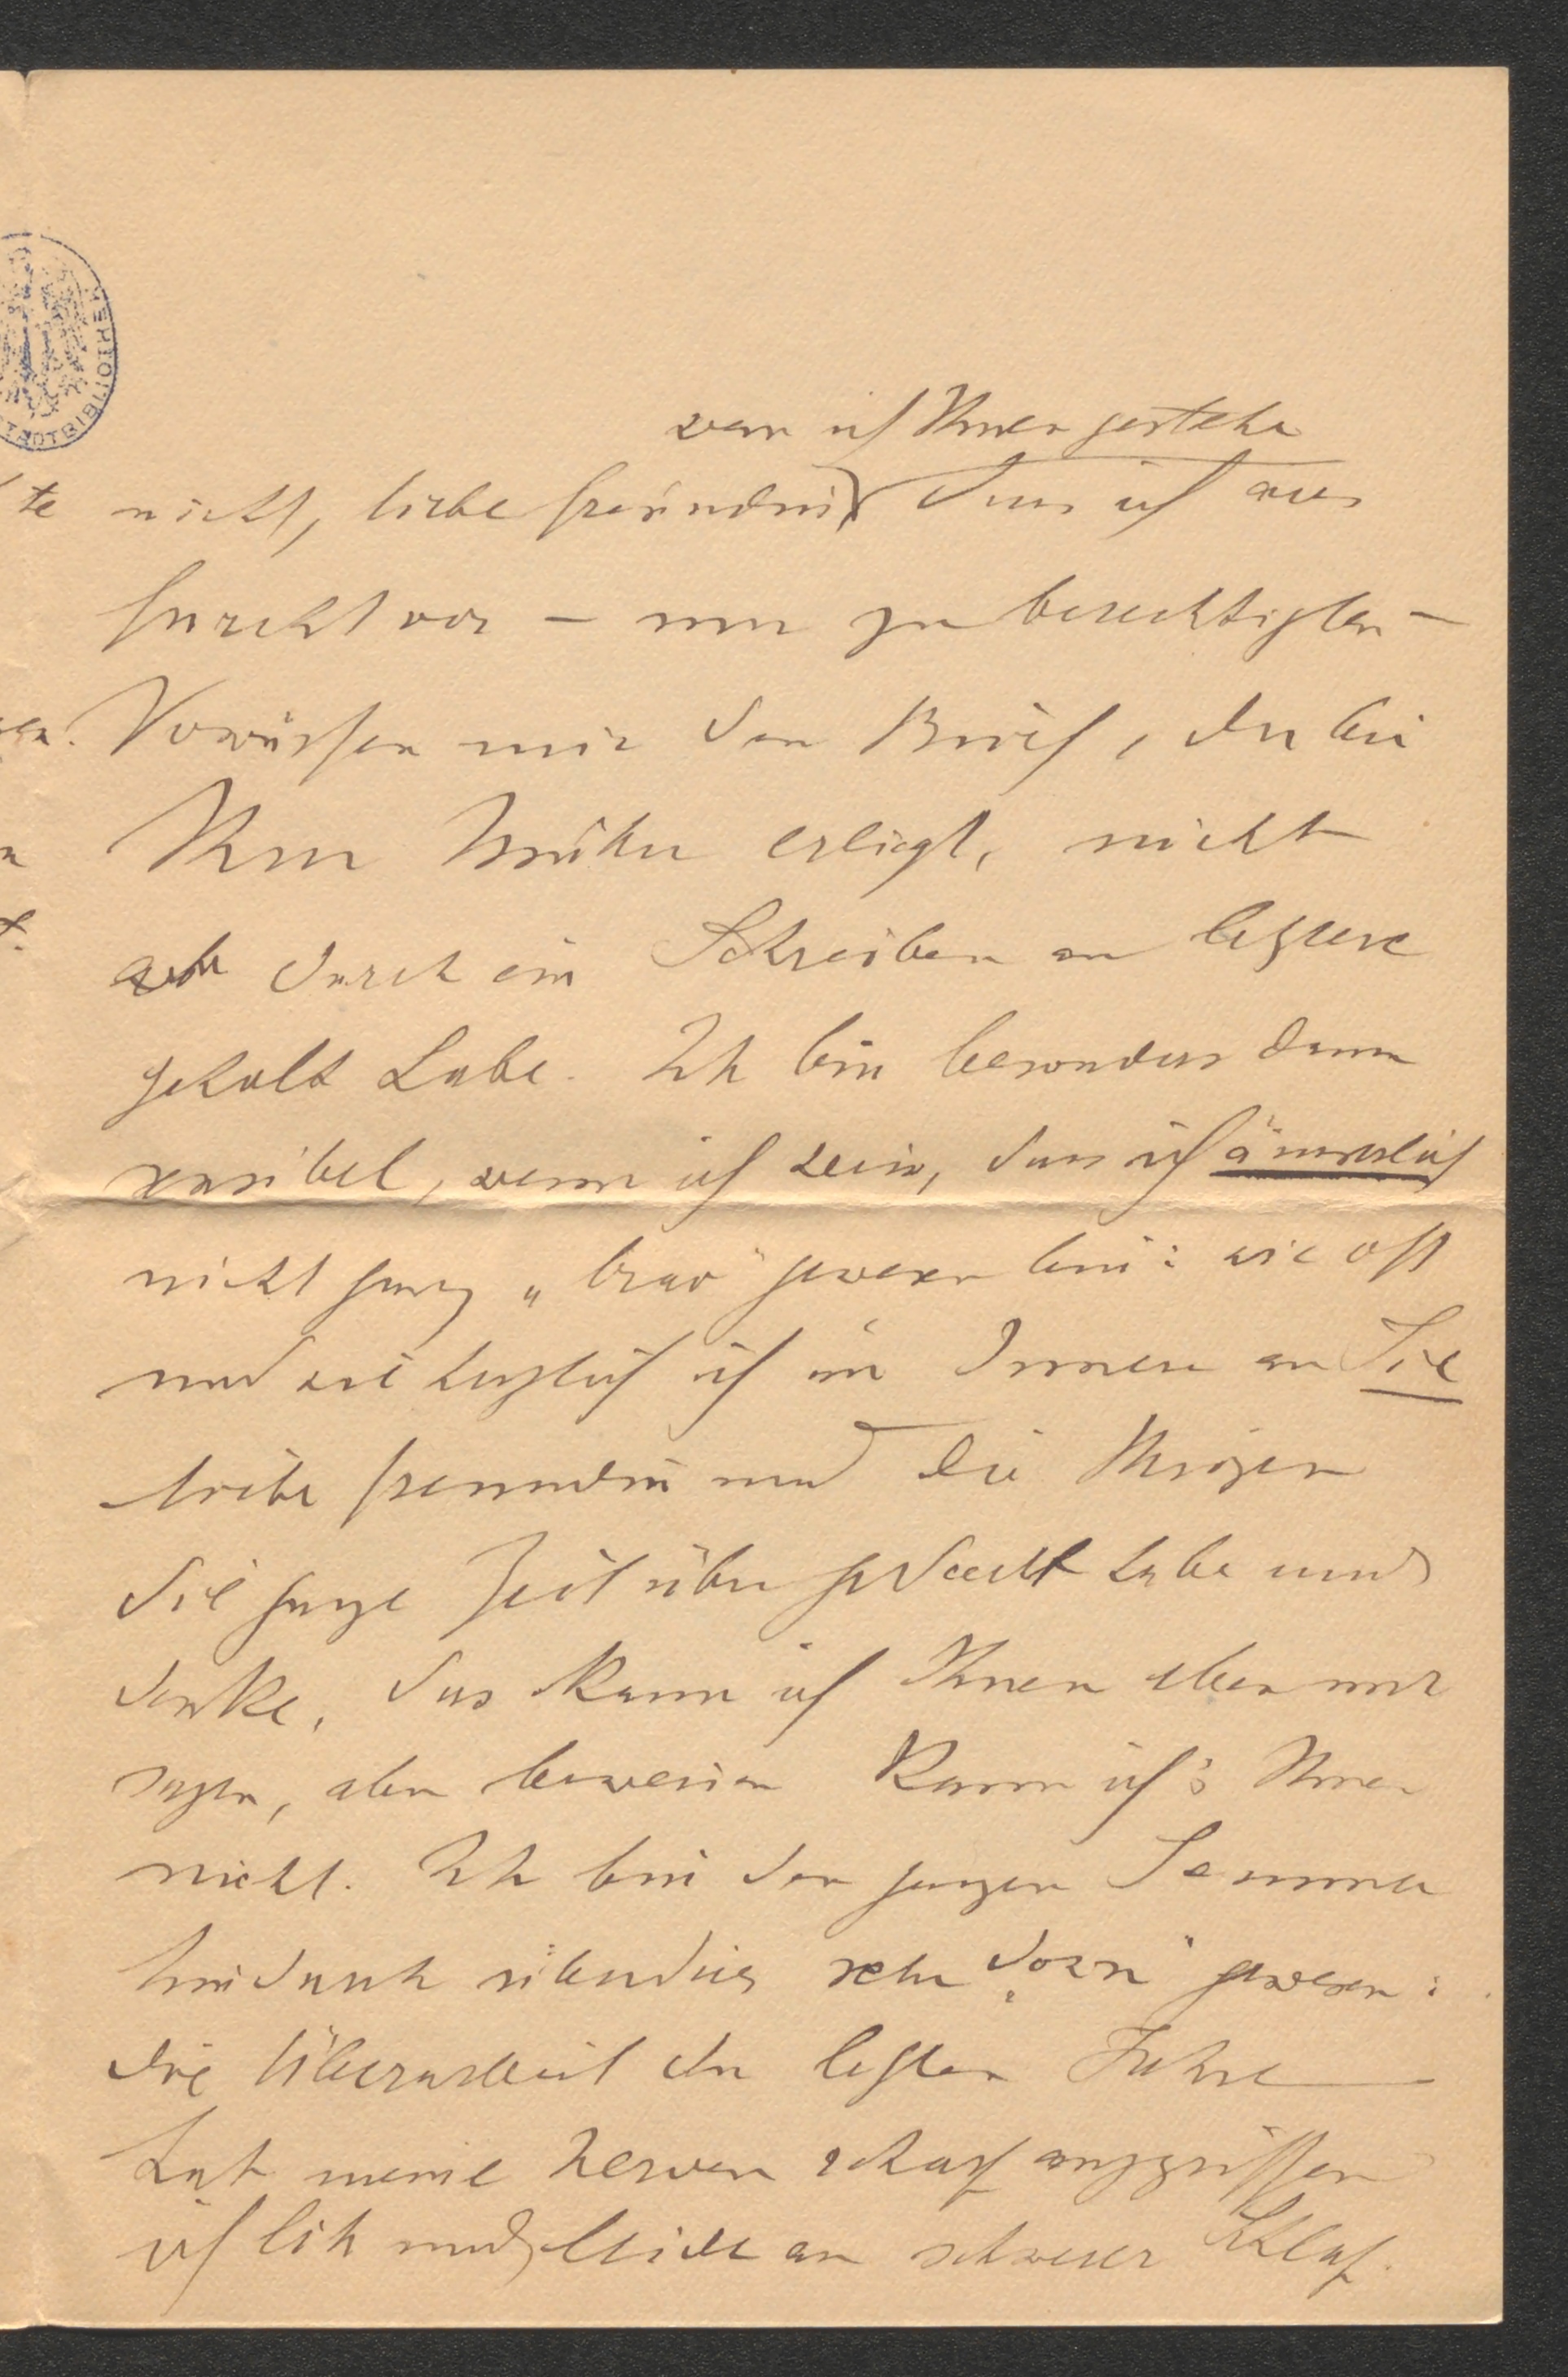 STADTBIBLIOTHEK
wenn ich Ihnen gestehe
te nicht, liebe Freundin, dass ich aus
Furcht vor – nur zu berechtigten –
Vorwürfen mir den Brief, der bei
Ihrer Mutter erliegt, nicht
durch ein Schreiben an letztere
geholt habe. Ich bin besonders dann
sensibel, wenn ich weiss, dass ich äusserlich
nicht ganz „brav" gewesen bin: wie oft
und wie herzlich ich im Innern an Sie
liebe Freundin und die Ihrigen
die ganze Zeit über gedacht habe und
denke, das kann ich Ihnen eben nur
sagen, aber beweisen kann ich's Ihnen
nicht. Ich bin den ganzen Sommer
hindurch überdies sehr gewesen:
die Überarbeit der letzten Jahre
hat meine Nerven scharf angegriffen
ich litt und leide an schwerer Schlaf-